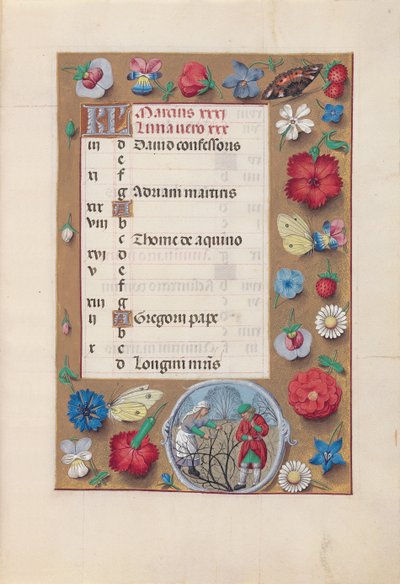 KL Marcius xxxj
Luna vero xxx
iii d Dauid confessoris
e
xi f
g Adriani martiris
xix A
viii b
c Thome de aquino
xvj d
v e
f
xiii g
ii A Gregorii pape
b
x c
d Longini mris